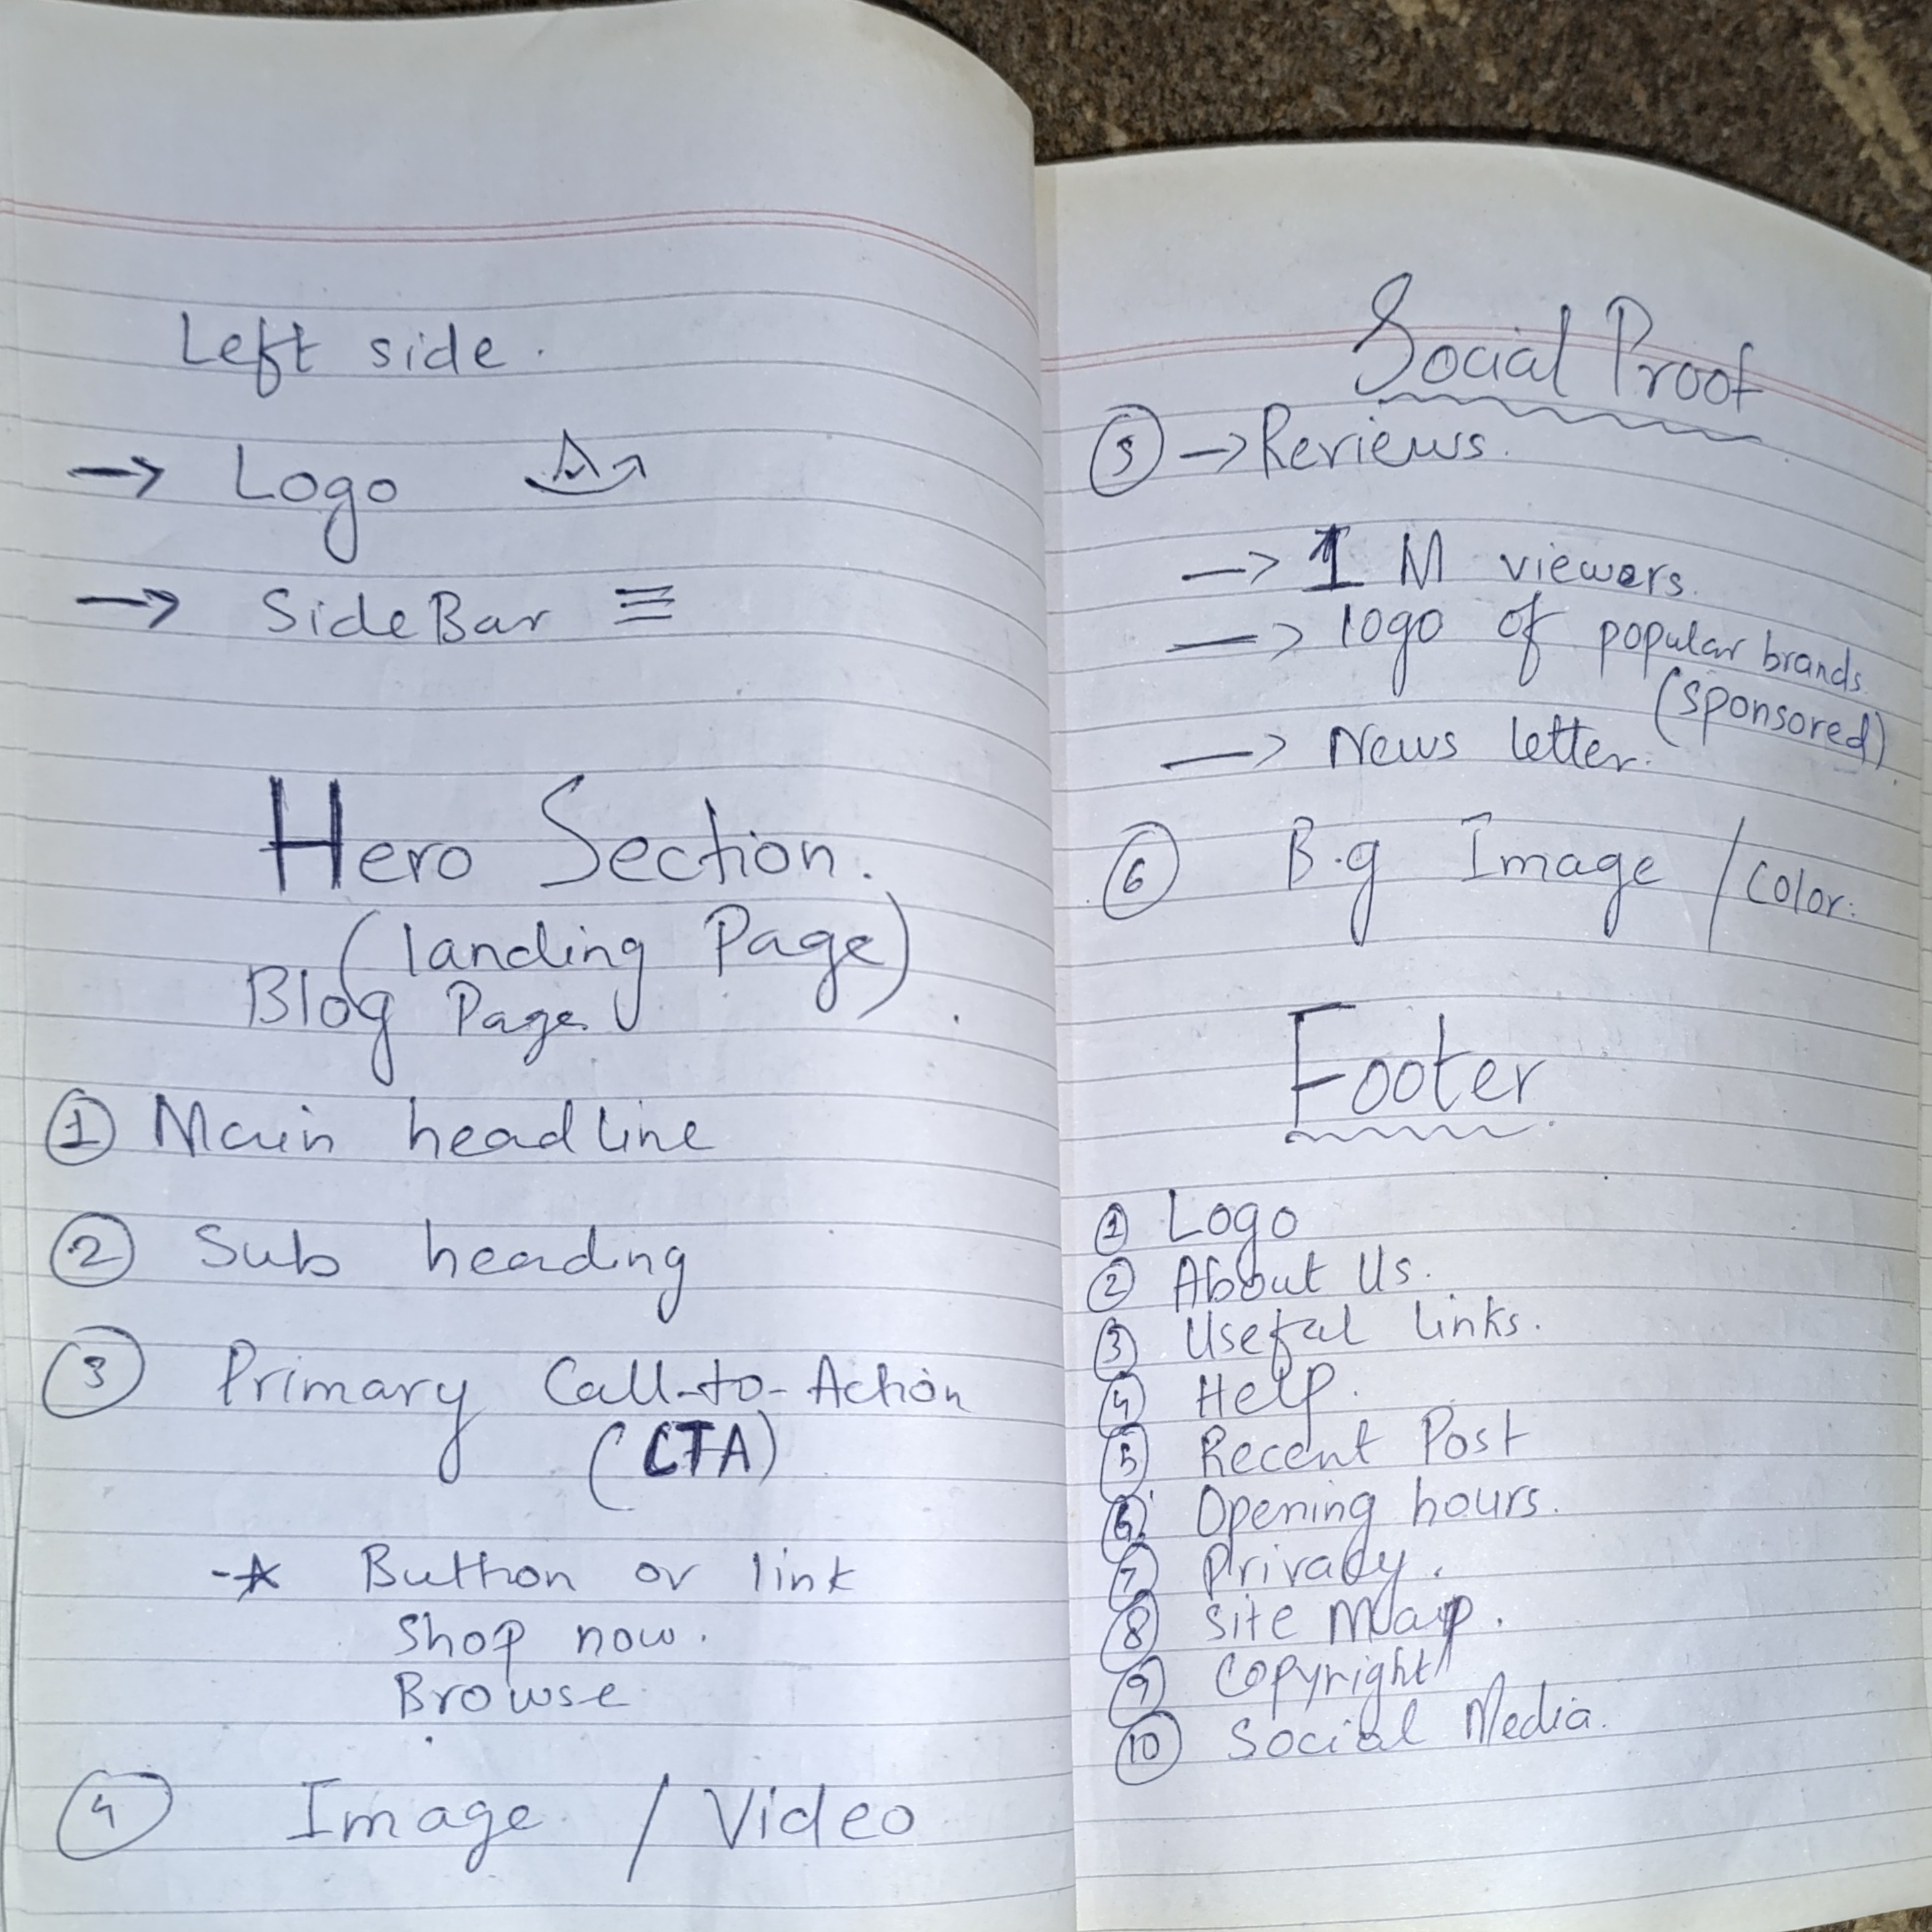 Left side.
→ Logo
→ SideBar ≡
Hero Section.
(landing Page)
Blog Page
① Main headline
② Sub heading
③ Primary Call-to-Action
(CTA)
-* Button or link
Shop now.
Browse
④ Image / Video
Social Proof
⑤ → Reviews.
→ 1 M viewers.
→ logo of popular brands
(sponsored).
→ News letter.
⑥ B.g Image / Color.
Footer
① Logo
② About Us.
③ Useful links.
④ Help.
⑤ Recent Post
⑥ Opening hours.
⑦ Privacy.
⑧ Site Map.
⑨ Copyright
⑩ Social Media.